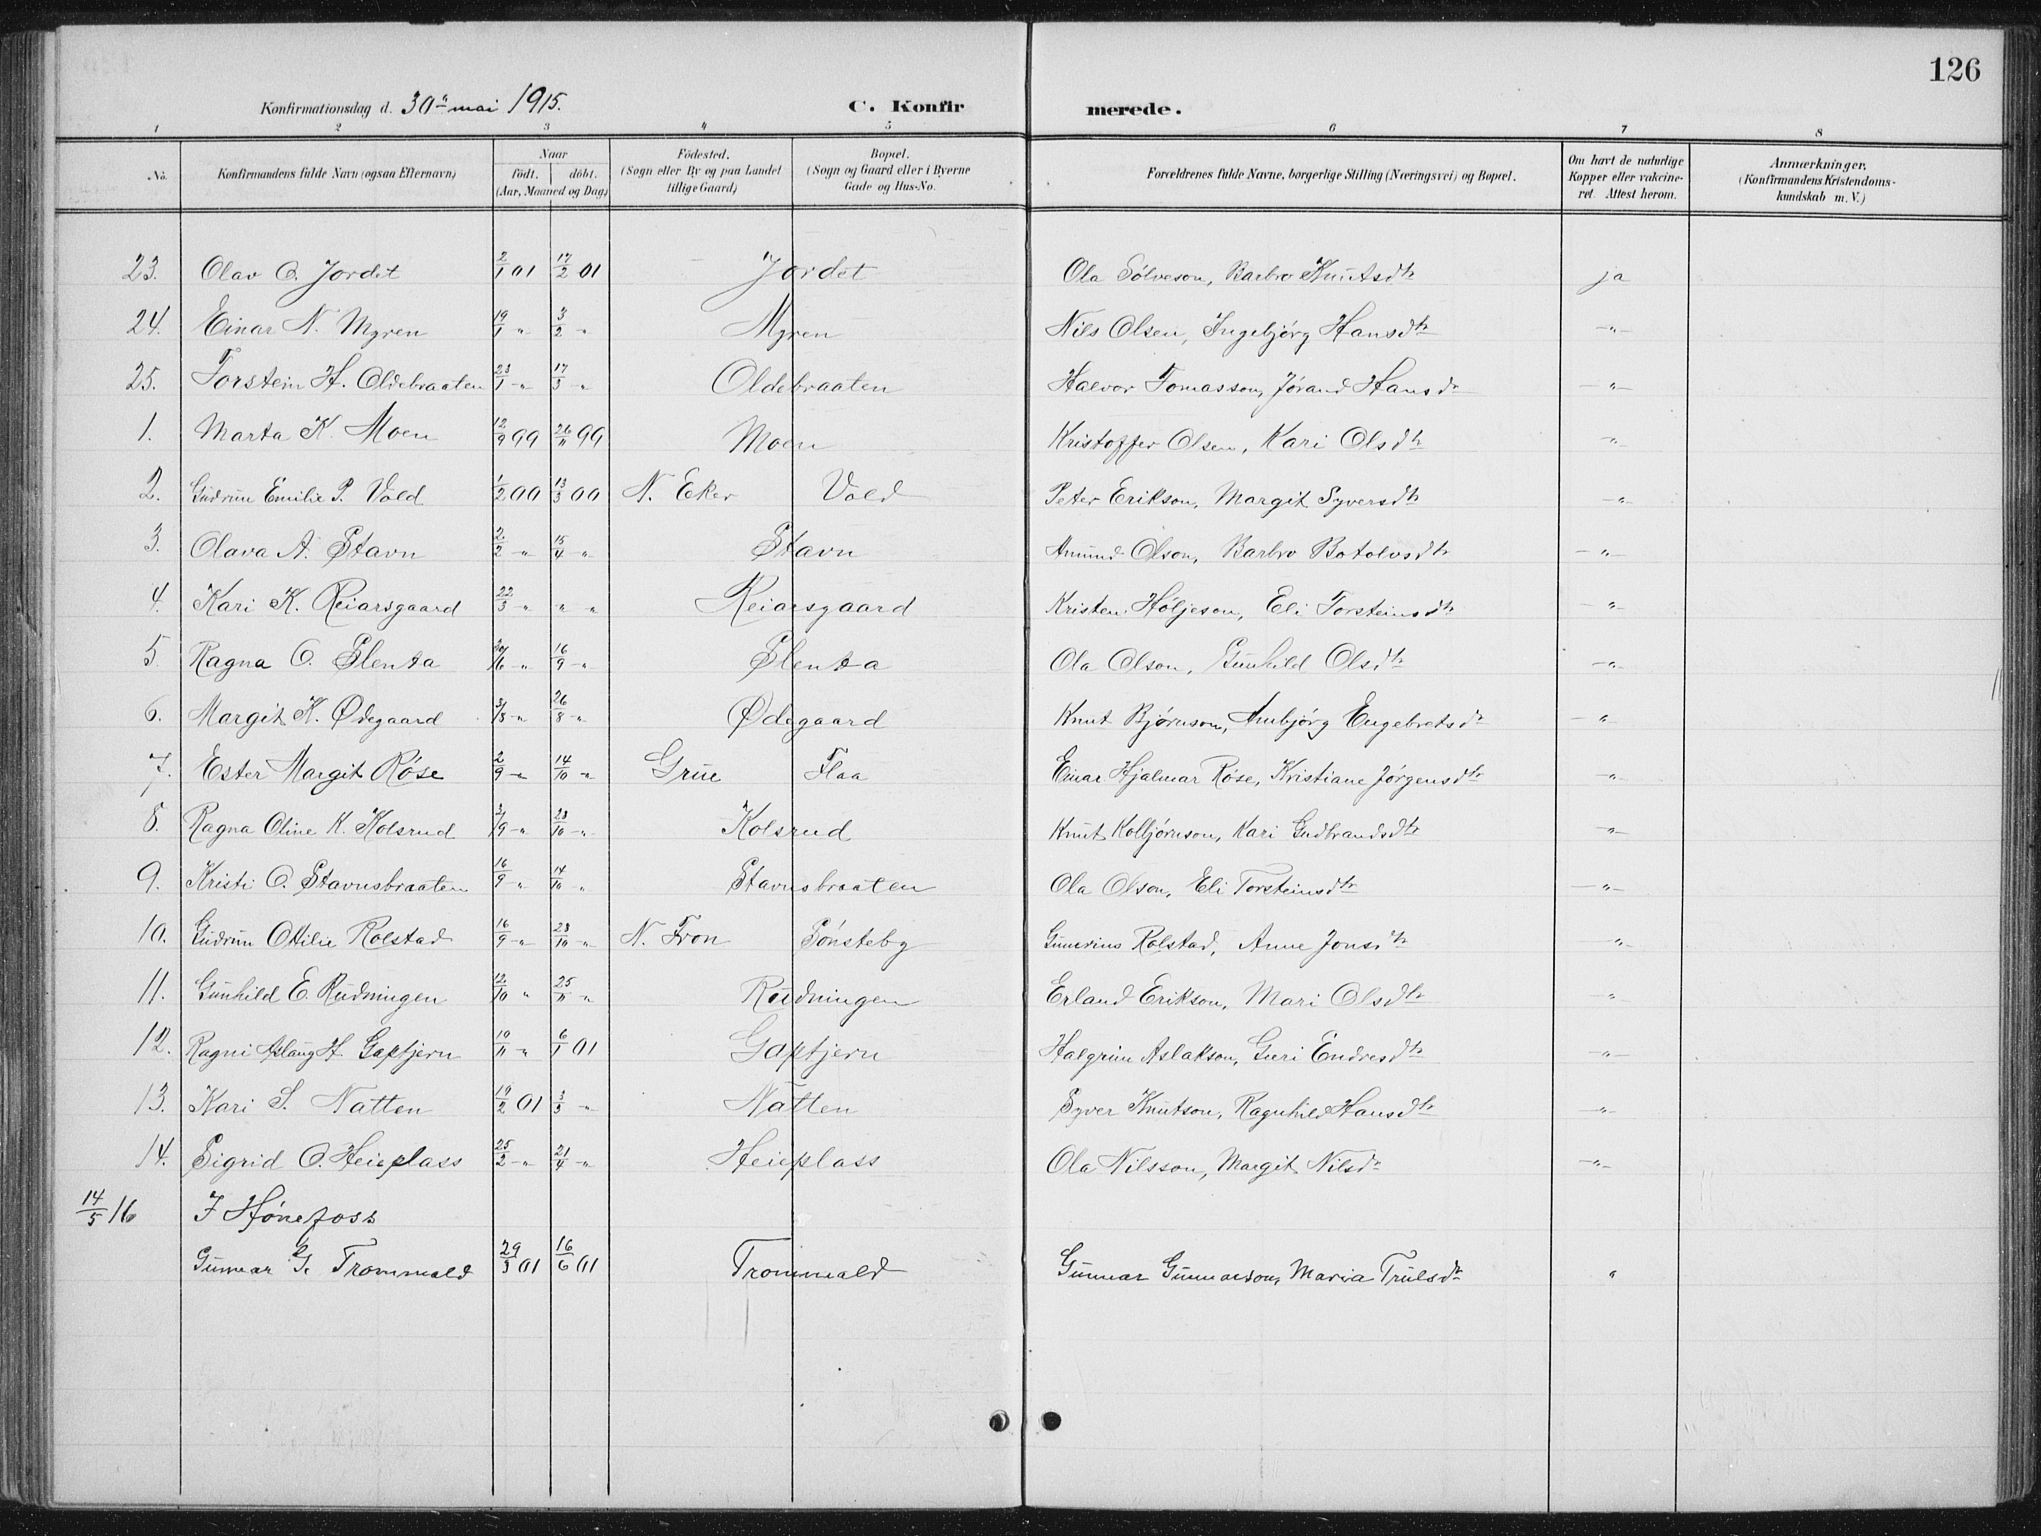 126
Konfirmationsdag d. 30" mai 1915. C. Konfirmerede.
1 2 3 4 5 6 7 8
No. Konfirmandens fulde Navn (ogsaa Efternavn) Naar födt. döbt. (Aar, Maaned og Dag) Födested. (Sogn eller By og paa Landet tillige Gaard) Bopæl. (Sogn og Gaard eller i Byerne Gade og Hus-No. Forældrenes fulde Navne, borgerlige Stilling (Næringsvei) og Bopæl. Om havt de naturlige Kopper eller vakcineret. Attest herom. Anmærkninger. (Konfirmandens Kristendomskundskab m. V.)
23. Olav O. Jordet 2/1 01 17/2 01 Jordet Ola Sølveson, Barbro Knutsdtr ja
24. Einar N. Myren 19/1 " 3/2 " Myren Nils Olsen, Ingebjørg Hansdtr -"-
25. Torstein H. Oldebraaten 23/1 -"- 17/3 " Oldebraaten Halvor Tomasson, Jørand Hansdr -"-
1. Marta K. Moen 12/9 99 26/11 99 Moen Kristoffer Olsen, Kari Olsdtr -"-
2. Gudrun Emilie P. Vold 1/2 00 13/3 00 N. Eker Vold Peter Erikson, Margit Syversdtr -"-
3. Olava A. Stavn 2/2 -"- 15/4 " Stavn Amund Olson, Barbro Botolvsdtr -"-
4. Kari K. Reiarsgaard 22/3 -"- " " Reiarsgaard Kristen Høljeson, Eli Torsteinsdtr -"-
5. Ragna O. Slenta /6 -"- 16/9 -"- Slenta Ola Olson, Gunhild Olsdtr -"-
6. Margit K. Ødegaard 3/8 -"- 26/8 -"- Ødegaard Knut Bjørnson, Ambjørg Engebretsdr -"-
7. Ester Margit Røse 2/9 -"- 14/10 -"- Grue Flaa Einar Hjalmar Røse, Kristiane Jørgensdtr -"-
8. Ragna Oline K. Kolsrud 3/9 -"- 28/10 -"- Kolsrud Knut Kolbjørnson, Kari Gudbrandsdtr -"-
9. Kristi O. Stavnsbraaten 16/9 -"- 14/10 -"- Stavnsbraaten Ola Olson, Eli Torsteinsdtr -"-
10. Gudrun Otilie Rolstad 16/9 -"- 28/10 -"- N. Fron Sønsteby Gunerius Rolstad, Anne Jonsdtr -"-
11. Gunhild E. Rudningen 12/10 " 25/11 -"- Rudningen Erland Erikson, Mari Olsdtr "
12. Ragni Aslaug H. Gaptjern 19/11 -"- 6/1 01 Gaptjern Halgrim Aslakson, Guri Endresdtr -"-
13. Kari S. Natten 19/2 01 3/3 -"- Natten Syver Knutson, Ragnhild Hansdtr -"-
14. Sigrid O. Heieplass 25/2 -"- 21/4 -"- Heieplass Ola Nilsson, Margit Nilsdr -"-
14/5 16 I Hønefoss
Gunnar G. Trommald 29/3 01 16/6 01 Trommald Gunnar Gunnarson, Maria Trulsdr "